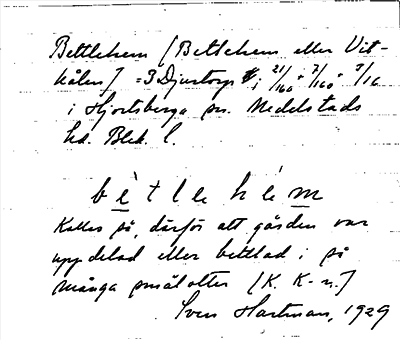 Bettlehem [Betlehem eller Vit-
kålen] = 3 Djurtorp #; 21/160, 7/160, 3/16
i Hjortsberga sn. Medelstads
hd. Blek. l.
bètlehém
Kallas så, därför att gården var
uppdelad eller bettlad i så
många småblotter [K. K-n.]
Sven Hartman, 1929